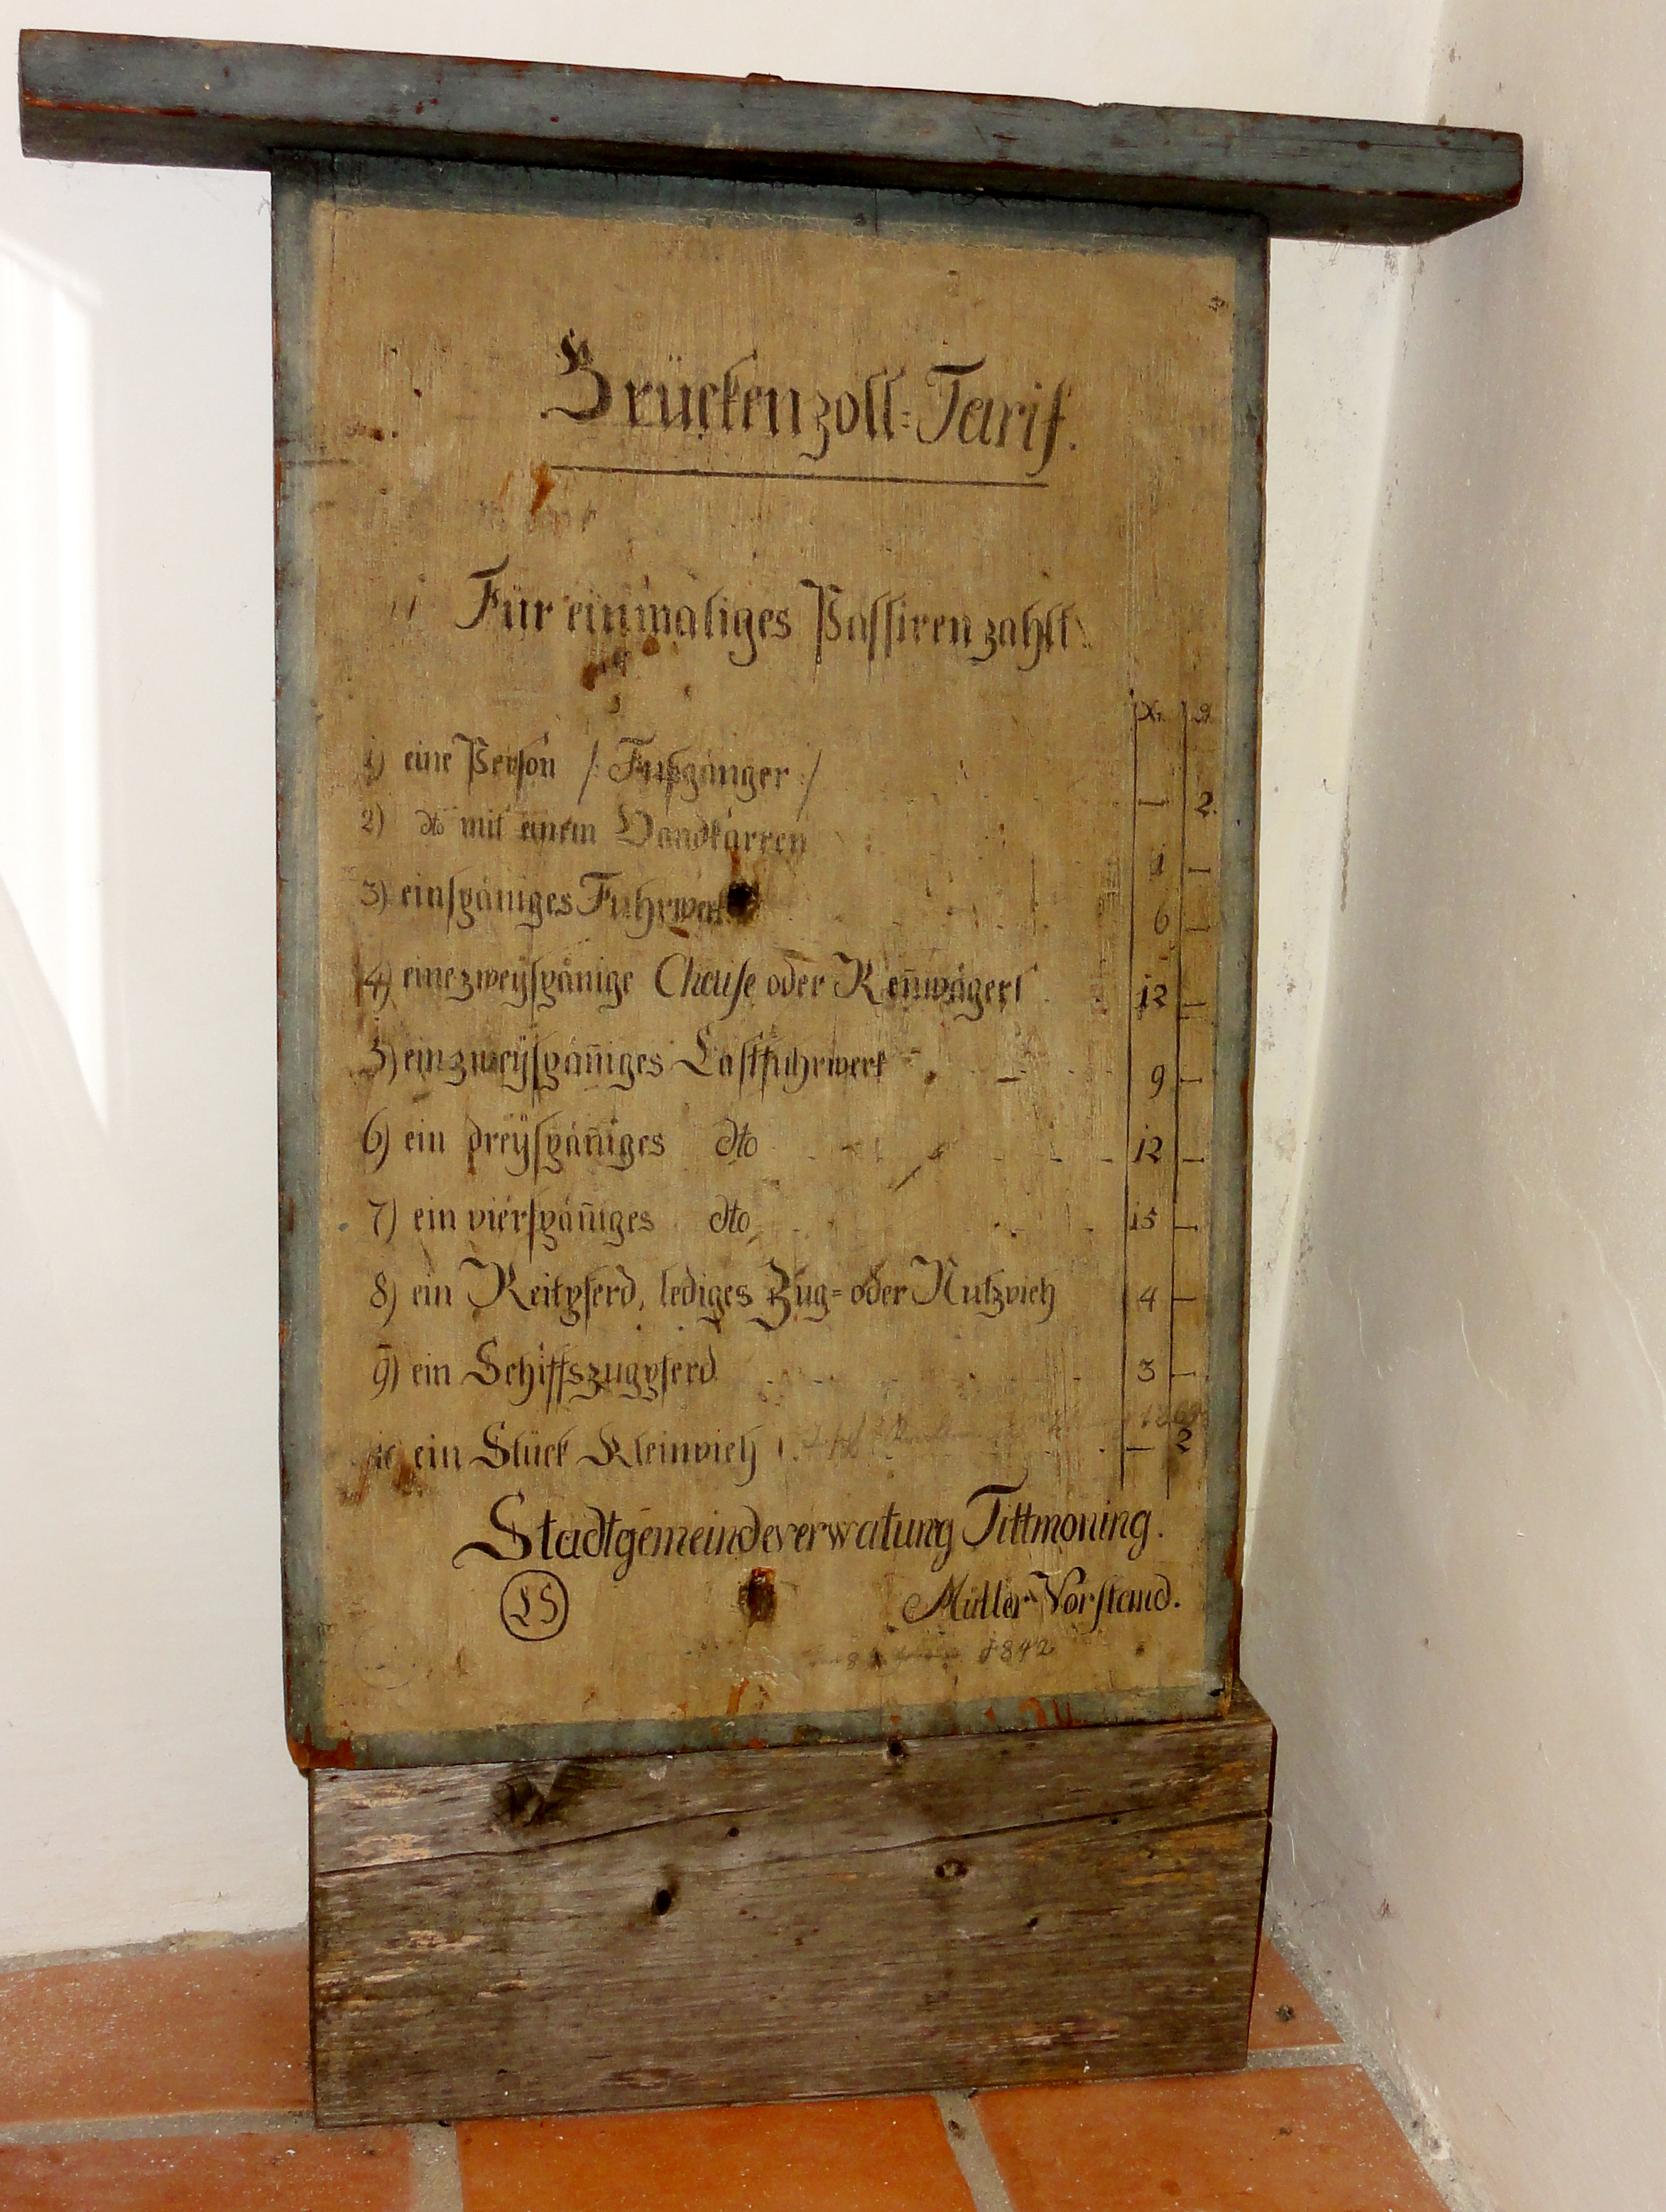 Brückenzoll=Tarif.
Für einmaliges Passiren zahlt:
Xr. ₰
1) eine Person /: Fußgänger :/ — 2.
2) dto mit einem Handkarren 1 —
3) einspäniges Fuhrwerk 6 —
4) eine zweyspänige Chaise oder Ren̄wägerl 12 —
5) ein zweyspän̄iges Lastfuhrwerk 9 —
6) ein dreyspän̄iges dto 12 —
7) ein vierspän̄iges dto 15 —
8) ein Reitpferd, lediges Zug= oder Nutzvieh 4 —
9) ein Schiffszugpferd 3 —
10) ein Stück Kleinvieh — 2
Stadtgemeindeverwaltung Tittmoning.
LS Müller Vorstand.
1842